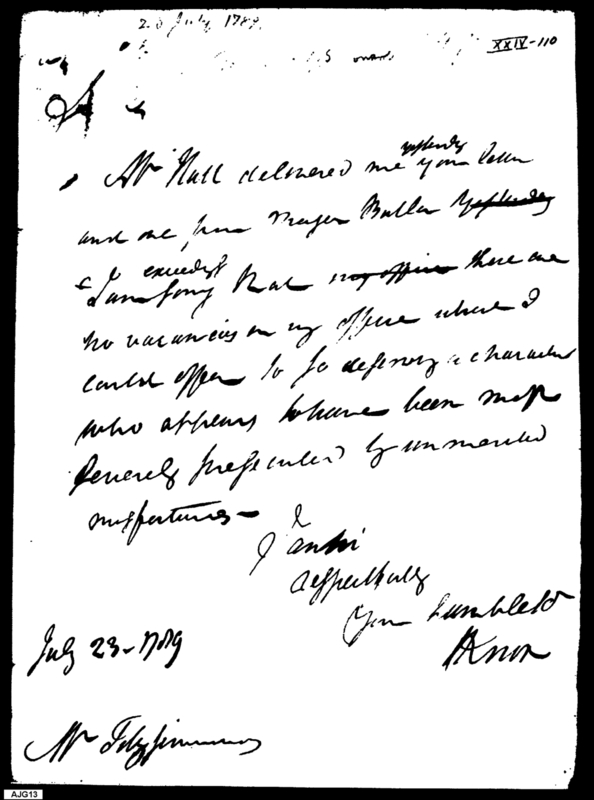 23 July 1789.
XXIV-110
yesterday
Mr Hall delivered me your letter
and one from Major Butler Yesterday
exceedgly
I am sorry that my office there are
no vacancies in my office where I
could offer to so deserving a character
who appears to have been most
severely persecuted by unmerited
misfortunes—
I am Sir
respectfully
Your humble St
HKnox
July 23—1789
Mr Fitzsimmons
AJG13